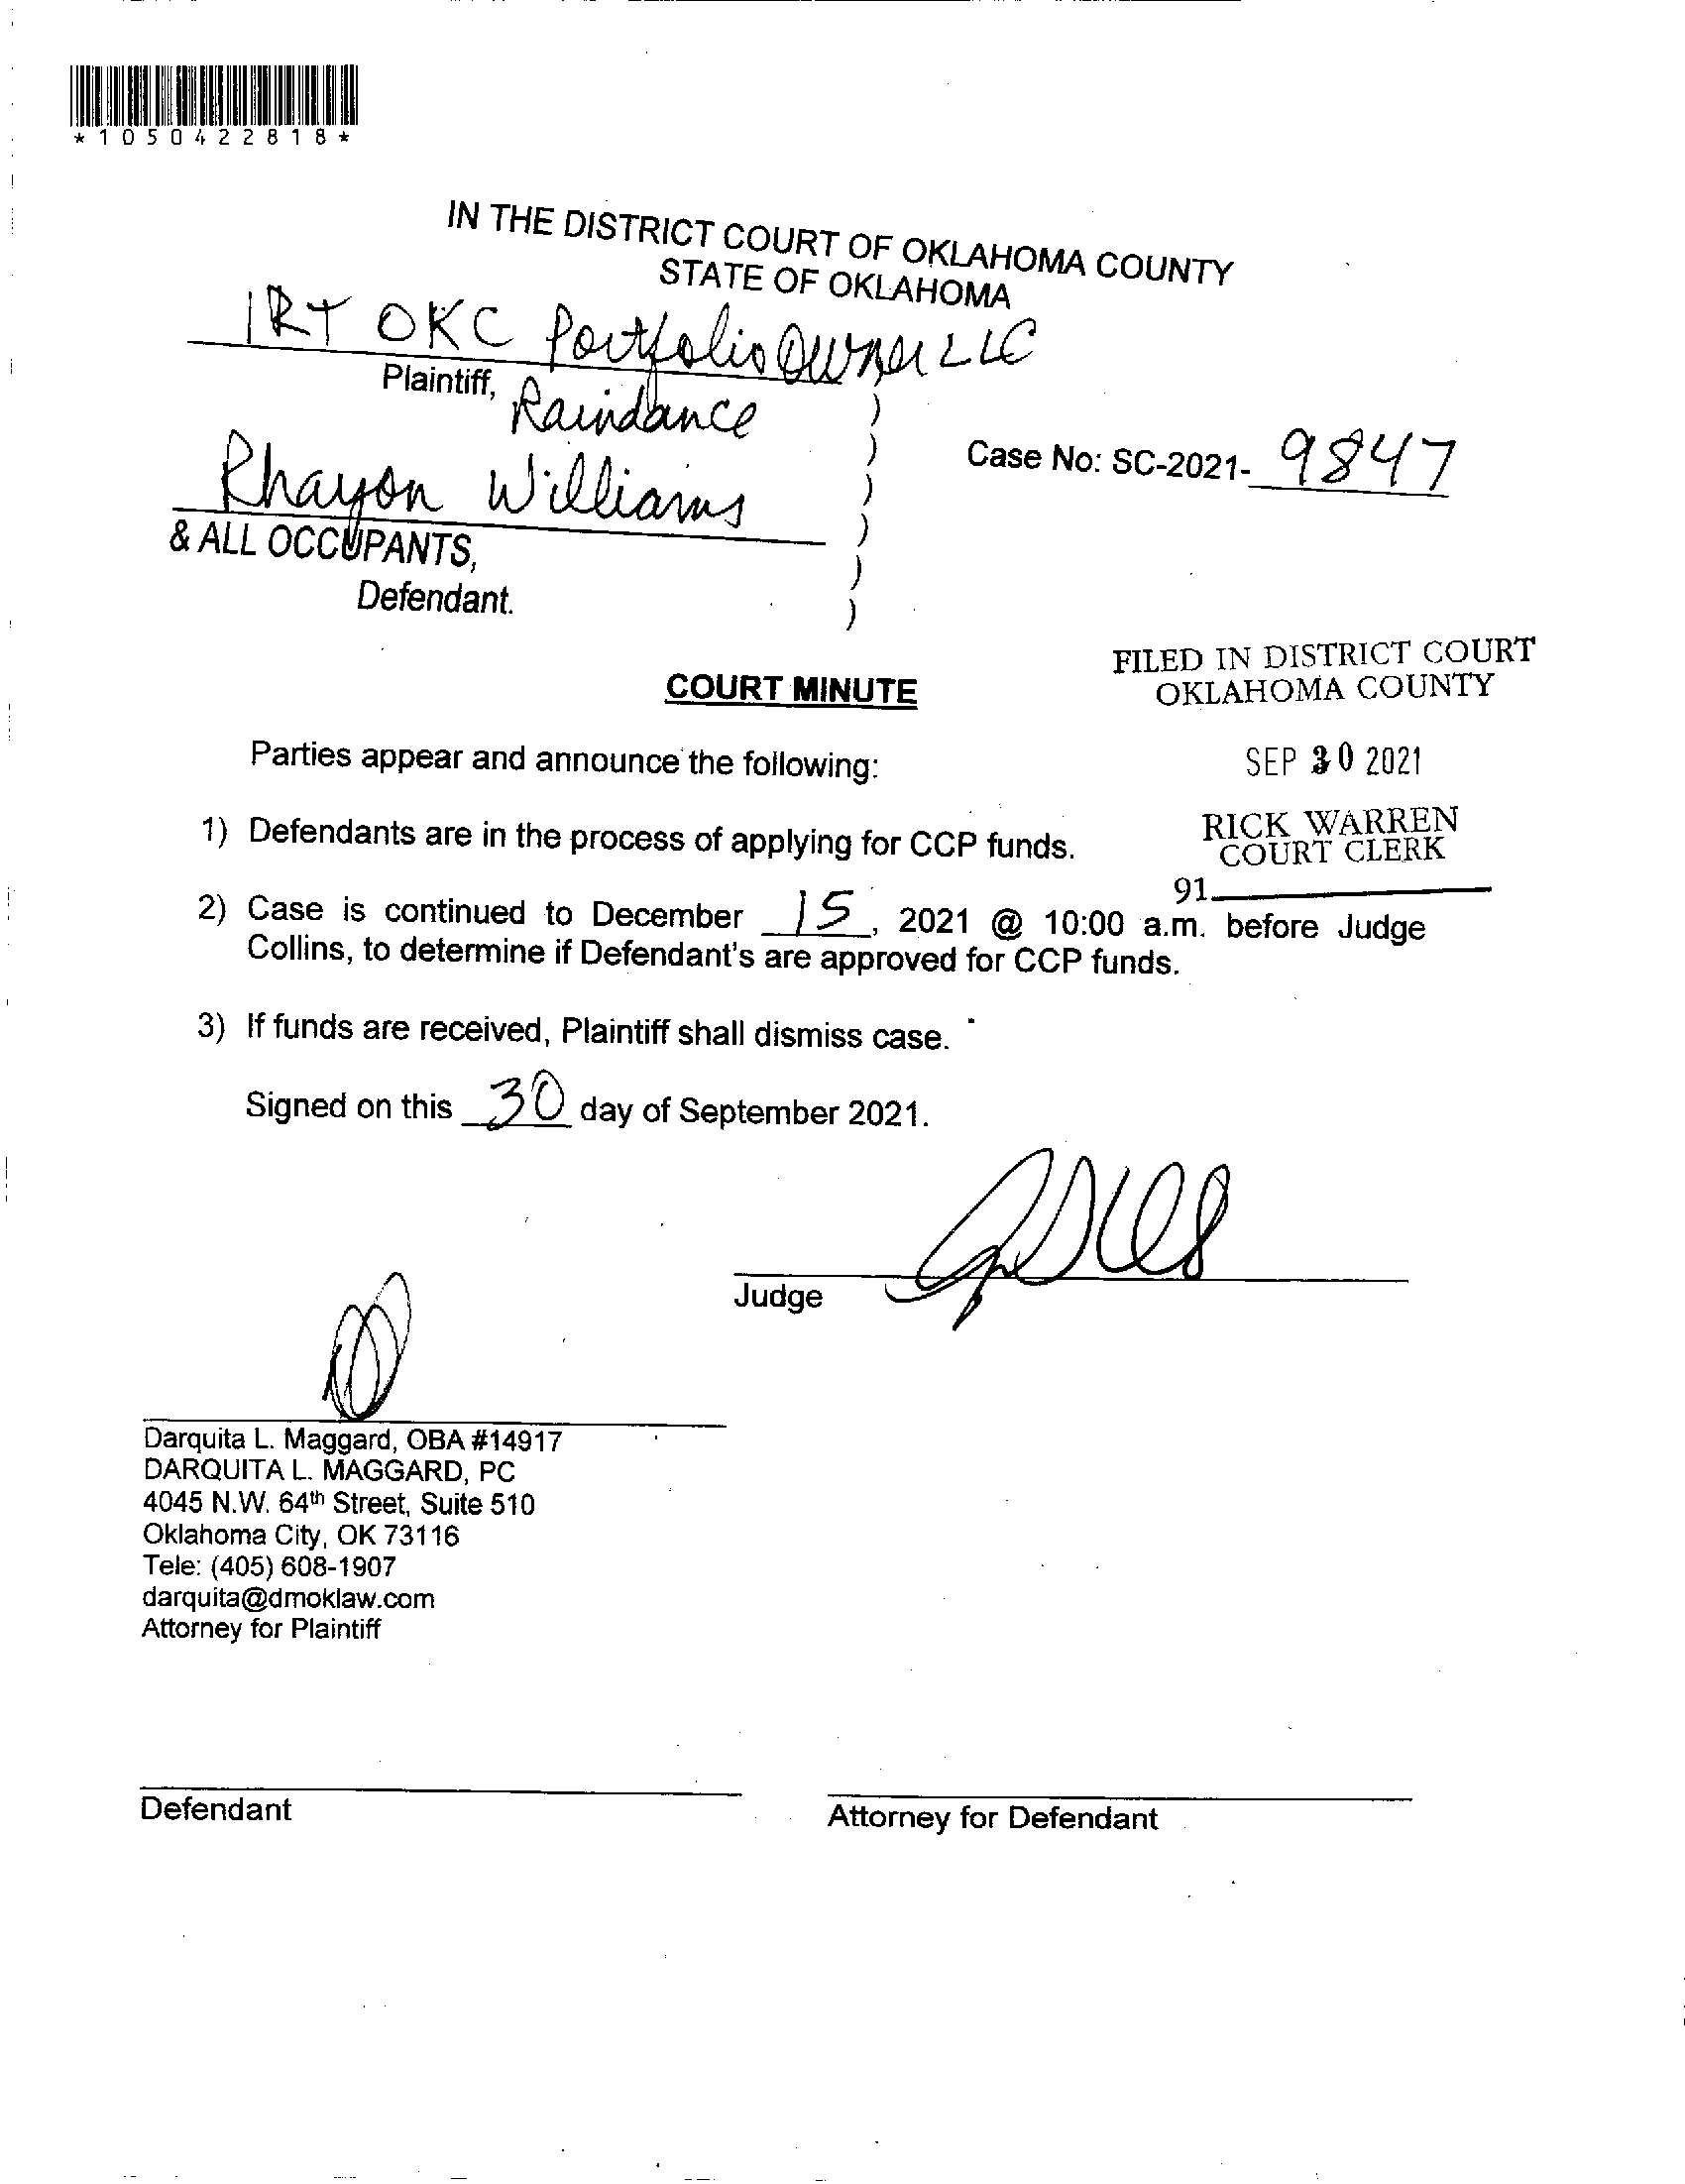 *1050422818*
IN THE DISTRICT COURT OF OKLAHOMA COUNTY
STATE OF OKLAHOMA
IRT OKC Portfolio Owner LLC
Plaintiff, Raindance
)
)
)
)
)
)
Case No: SC-2021- 9847
Rhayon Williams
& ALL OCCUPANTS,
Defendant.
FILED IN DISTRICT COURT
OKLAHOMA COUNTY
COURT MINUTE
SEP 30 2021
Parties appear and announce the following:
RICK WARREN
COURT CLERK
91
1) Defendants are in the process of applying for CCP funds.
2) Case is continued to December 15, 2021 @ 10:00 a.m. before Judge
Collins, to determine if Defendant's are approved for CCP funds.
3) If funds are received, Plaintiff shall dismiss case.
Signed on this 30 day of September 2021.
Judge
Darquita L. Maggard, OBA #14917
DARQUITA L. MAGGARD, PC
4045 N.W. 64th Street, Suite 510
Oklahoma City, OK 73116
Tele: (405) 608-1907
darquita@dmoklaw.com
Attorney for Plaintiff
Defendant
Attorney for Defendant